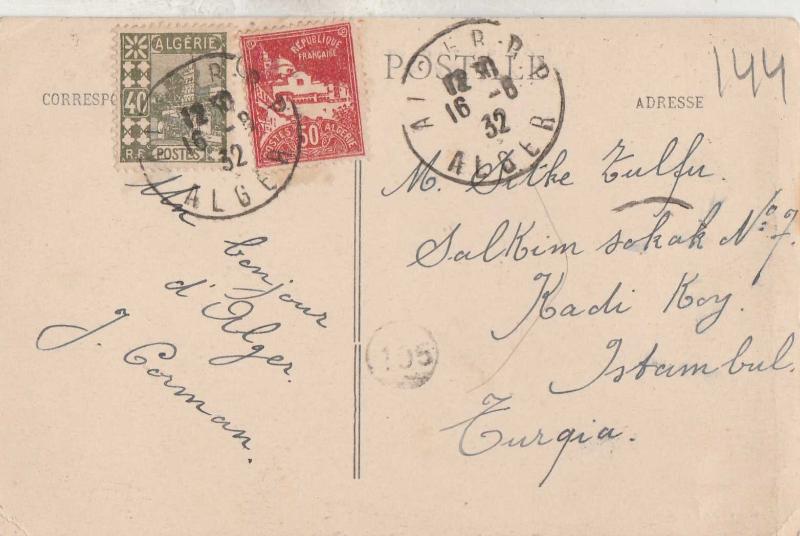 ALGÉRIE
40
R.F. POSTES
RÉPUBLIQUE
FRANÇAISE
50
POSTES ALGÉRIE
ALGER R.P.
12 30
16 -8
32
ALGER
ALGER R.P.
12 30
16 -8
32
ALGER
144
ADRESSE
Un bonjour
d'Alger.
J. Corman.
105
M. Sitke Zulfu.
Salkim sokak No 7.
Kadi Koy.
Istambul.
Turqia.